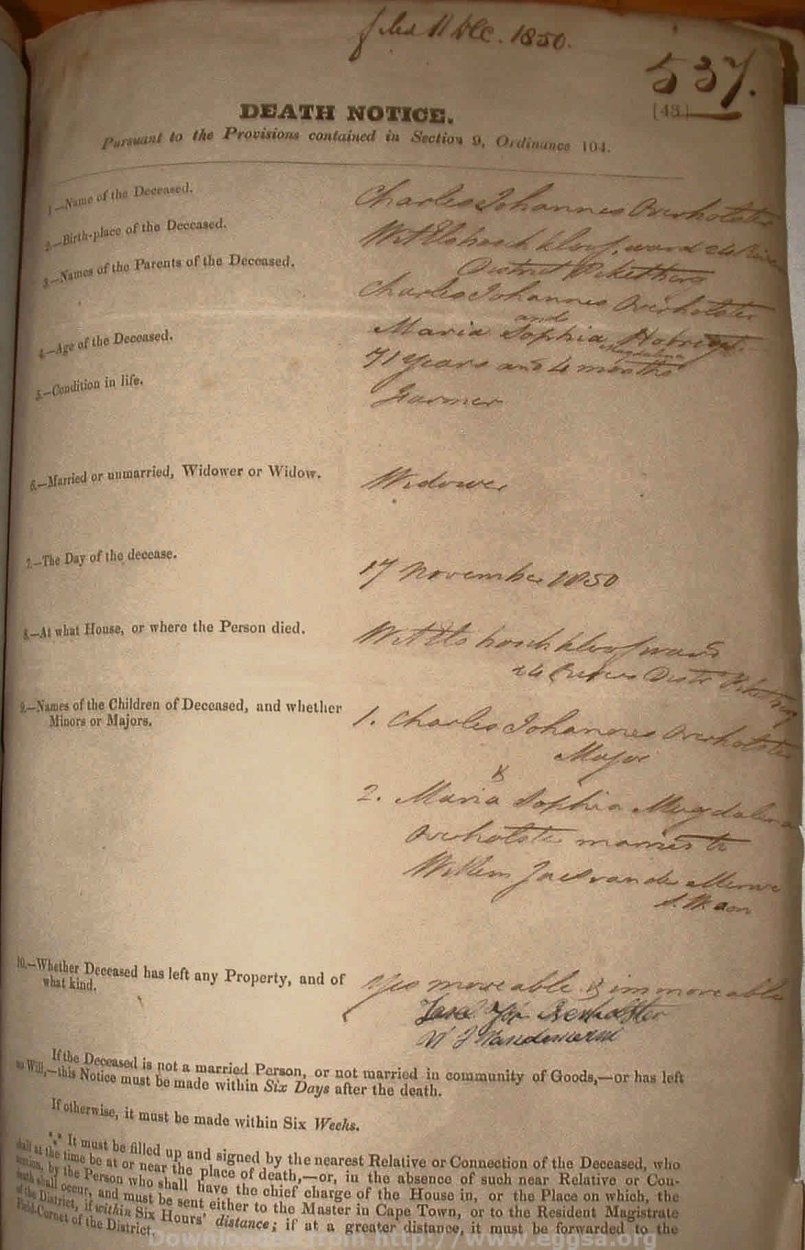 filed 11 Dec. 1850.
537.
[43]
DEATH NOTICE.
Pursuant to the Provisions contained in Section 9, Ordinance 104.
1.—Name of the Deceased.
Charles Johannes Overholster
2.—Birth-place of the Deceased.
kloof, ward 24 River
District
3.—Names of the Parents of the Deceased.
Charles Johannes Overholster
and
Maria Sophia
Magdalena
4.—Age of the Deceased.
71 years and 4 months
5.—Condition in life.
Farmer
6.—Married or unmarried, Widower or Widow.
Widower
7.—The Day of the decease.
17 November 1850
8.—At what House, or where the Person died.
kloof ward
24 Rivers Distr
9.—Names of the Children of Deceased, and whether
Minors or Majors.
1. Charles Johannes Overholster
Major
&
2. Maria Sophia Magdalena
Overholster married to
Willem van der Merwe
10.—Whether Deceased has left any Property, and of
what kind.
Yes moveable & immoveable
If the Deceased is not a married Person, or not married in community of Goods,—or has left
no Will,—this Notice must be made within Six Days after the death.
If otherwise, it must be made within Six Weeks.
It must be filled up and signed by the nearest Relative or Connection of the Deceased, who
shall at the time be at or near the place of death,—or, in the absence of such near Relative or Con-
nection, by the Person who shall have the chief charge of the House in, or the Place on which, the
death shall occur, and must be sent either to the Master in Cape Town, or to the Resident Magistrate
of the District, if within Six Hours' distance; if at a greater distance, it must be forwarded to the
Field-Cornet of the District.
Downloaded from http://www.eggsa.org